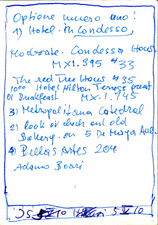 Optione numero uno!
1) Hotel - Pn Condesso,
Moderate. Condessa House
MX1.895 $33
The red Tree House $35
1000 Hotel Hilton Terrace
Breakfast MX1.745
3) Metropolitana Catedral
2) look at clock and old
Bakery on 5 De Mayo Ave.
4) Bellas Artes 204
Adamo Boari
5 V 10